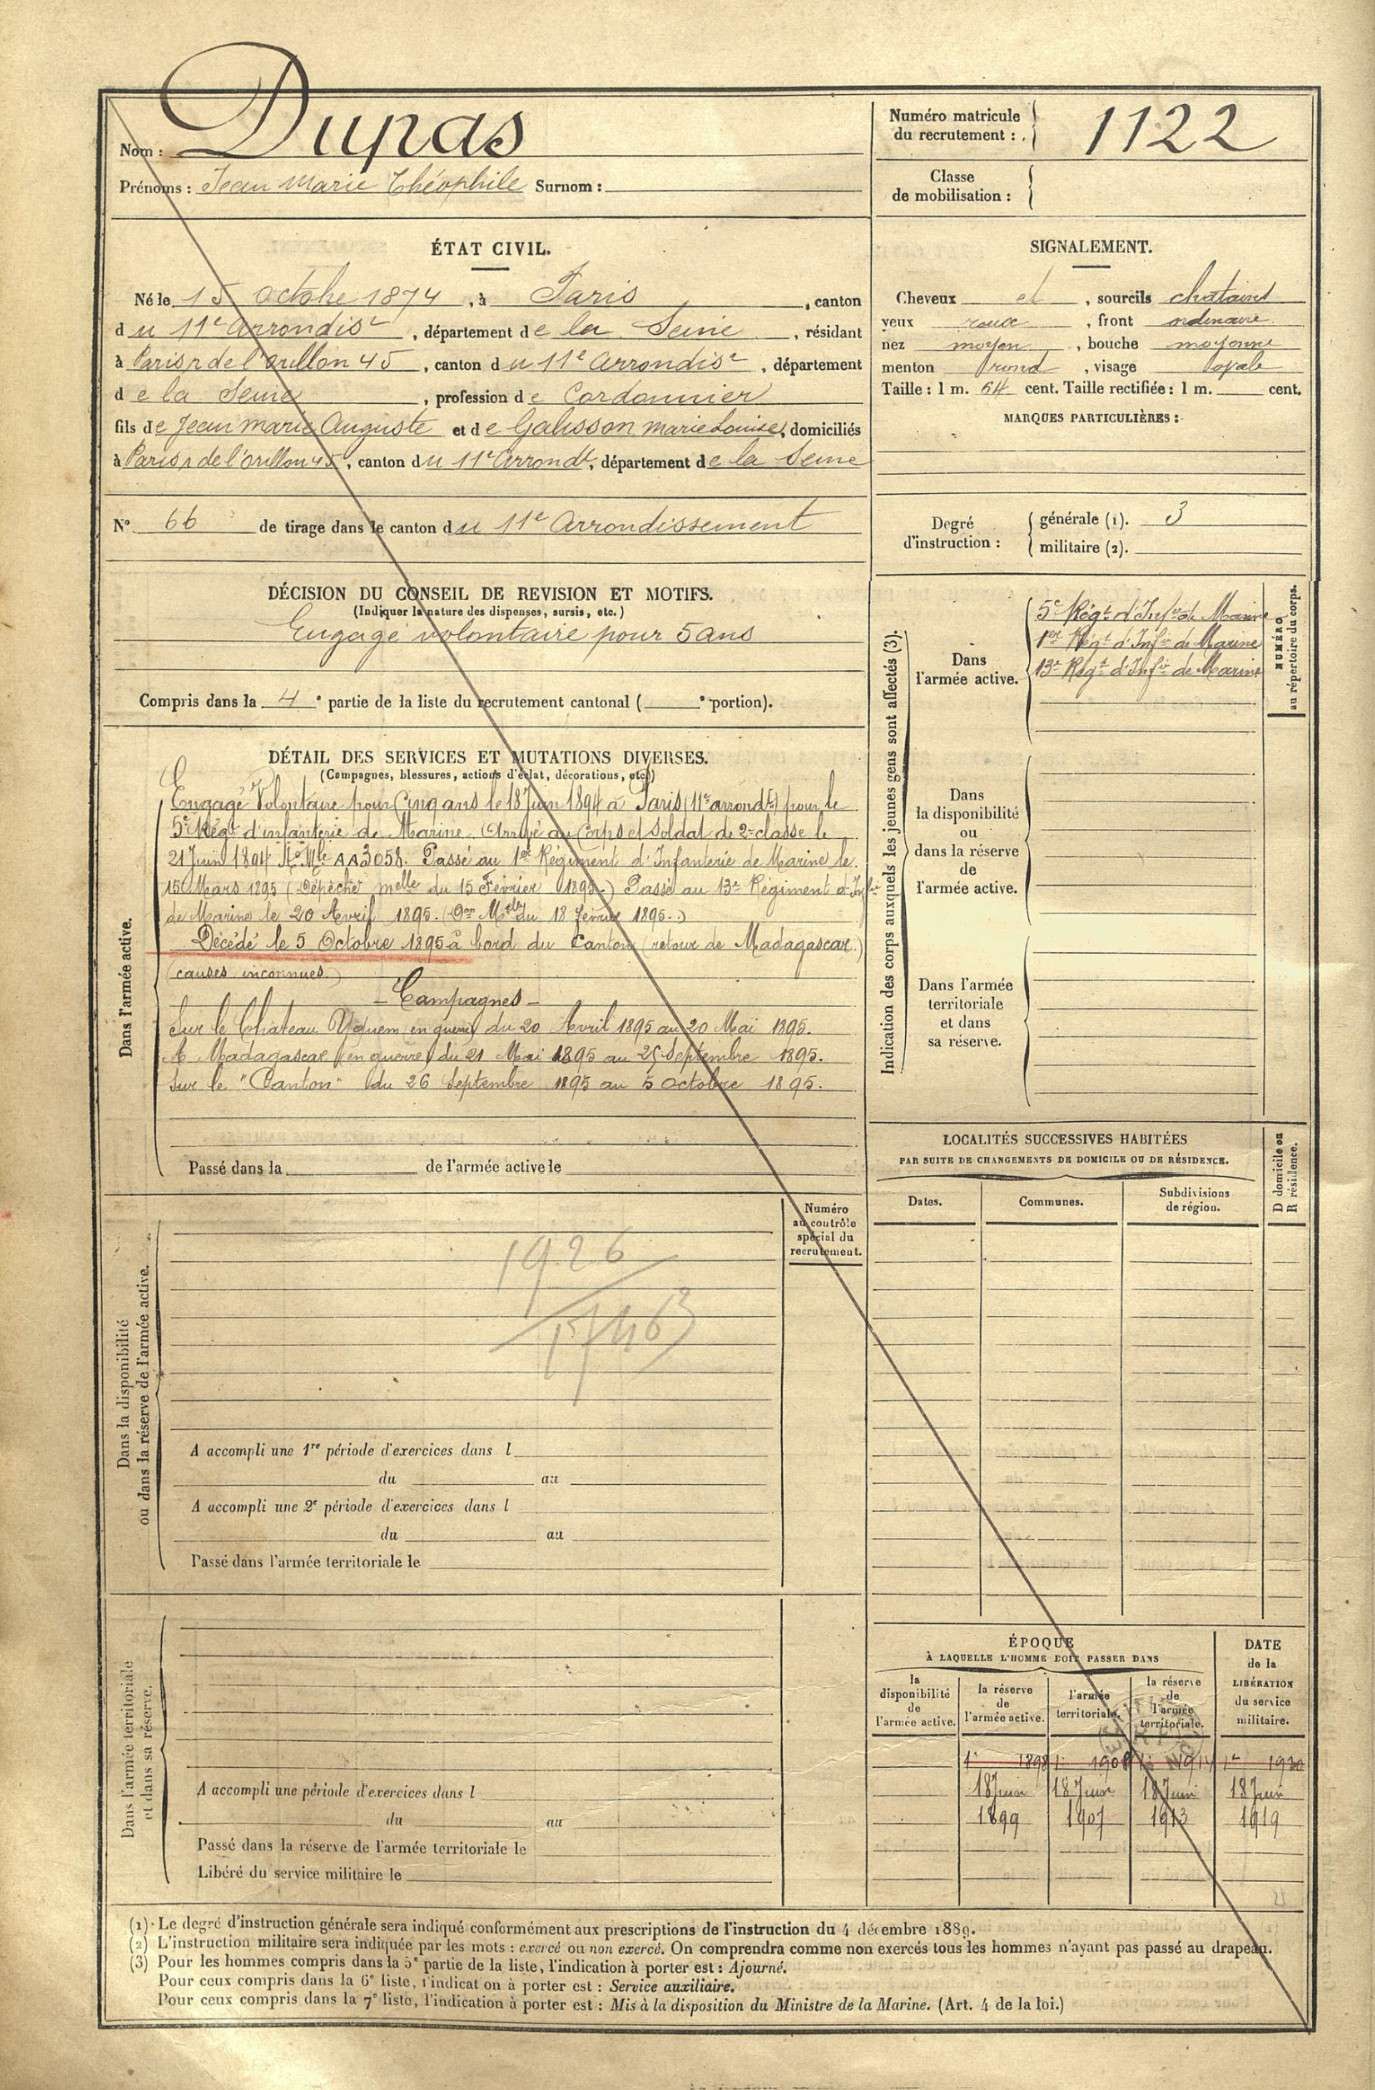 Nom : Dupas
Prénoms : Jean Marie Théophile Surnom :
Numéro matricule du recrutement : 1122
Classe de mobilisation :
ÉTAT CIVIL.
Né le 15 octobre 1874, à Paris, canton
du 11e Arrondist, département de la Seine, résidant
à Paris r de l'orillon 45, canton du 11e Arrondist, département
de la Seine, profession de Cordonnier
fils de Jean marie Auguste et de Galisson marie Louise, domiciliés
à Paris r de l'orillon 45, canton du 11e Arrondt, département de la Seine
SIGNALEMENT.
Cheveux et, sourcils chatains
yeux roux, front ordinaire
nez moyen, bouche moyenne
menton rond, visage ovale
Taille : 1 m. 64 cent. Taille rectifiée : 1 m. cent.
MARQUES PARTICULIÈRES :
No 66 de tirage dans le canton du 11e Arrondissement
Degré d'instruction :
générale (1). 3
militaire (2).
DÉCISION DU CONSEIL DE REVISION ET MOTIFS.
(Indiquer la nature des dispenses, sursis, etc.)
Engagé volontaire pour 5 ans
Compris dans la 4e partie de la liste du recrutement cantonal ( e portion).
DÉTAIL DES SERVICES ET MUTATIONS DIVERSES.
(Campagnes, blessures, actions d'éclat, décorations, etc.)
Dans l'armée active.
Engagé Volontaire pour Cinq ans le 18 Juin 1894 à Paris (11e arrondt) pour le
5e Régt d'infanterie de Marine. Arrivé au Corps et Soldat de 2e classe le
21 Juin 1894 No Mle AA3058. Passé au 1er Régiment d'Infanterie de Marine le
15 Mars 1895 (Dépêche Melle du 15 Février 1895.) Passé au 13e Régiment d'Infie
de Marine le 20 Avril 1895. (Don Mlle du 18 Février 1895.)
Décédé le 5 Octobre 1895 à bord du Canton (retour de Madagascar)
(causes inconnues)
- Campagnes -
Sur le Chateau Yquem en guerre du 20 Avril 1895 au 20 Mai 1895.
A Madagascar (en guerre) du 21 Mai 1895 au 25 Septembre 1895.
Sur le "Canton" du 26 Septembre 1895 au 5 octobre 1895.
Passé dans la de l'armée active le
Indication des corps auxquels les jeunes gens sont affectés (3).
NUMÉRO au répertoire du corps.
Dans l'armée active.
5e Régt d'Infie de Marine
1er Régt d'Infie de Marine
13e Régt d'Infie de Marine
Dans la disponibilité ou dans la réserve de l'armée active.
Dans l'armée territoriale et dans sa réserve.
LOCALITÉS SUCCESSIVES HABITÉES
PAR SUITE DE CHANGEMENTS DE DOMICILE OU DE RÉSIDENCE.
Dates. Communes. Subdivisions de région.
D domicile ou R résidence.
Numéro au contrôle spécial du recrutement.
Dans la disponibilité ou dans la réserve de l'armée active.
1926
17463
A accompli une 1re période d'exercices dans l
du au
A accompli une 2e période d'exercices dans l
du au
Passé dans l'armée territoriale le
Dans l'armée territoriale et dans sa réserve.
A accompli une période d'exercices dans l
du au
Passé dans la réserve de l'armée territoriale le
Libéré du service militaire le
ÉPOQUE
À LAQUELLE L'HOMME DOIT PASSER DANS
la disponibilité de l'armée active.
la réserve de l'armée active.
l'armée territoriale.
la réserve de l'armée territoriale.
DATE de la LIBÉRATION du service militaire.
18 Juin 18 Juin 18 Juin 18 Juin
1899 1907 1913 1919
(1) Le degré d'instruction générale sera indiqué conformément aux prescriptions de l'instruction du 4 décembre 1889.
(2) L'instruction militaire sera indiquée par les mots : exercé ou non exercé. On comprendra comme non exercés tous les hommes n'ayant pas passé au drapeau.
(3) Pour les hommes compris dans la 5e partie de la liste, l'indication à porter est : Ajourné.
Pour ceux compris dans la 6e liste, l'indication à porter est : Service auxiliaire.
Pour ceux compris dans la 7e liste, l'indication à porter est : Mis à la disposition du Ministre de la Marine. (Art. 4 de la loi.)